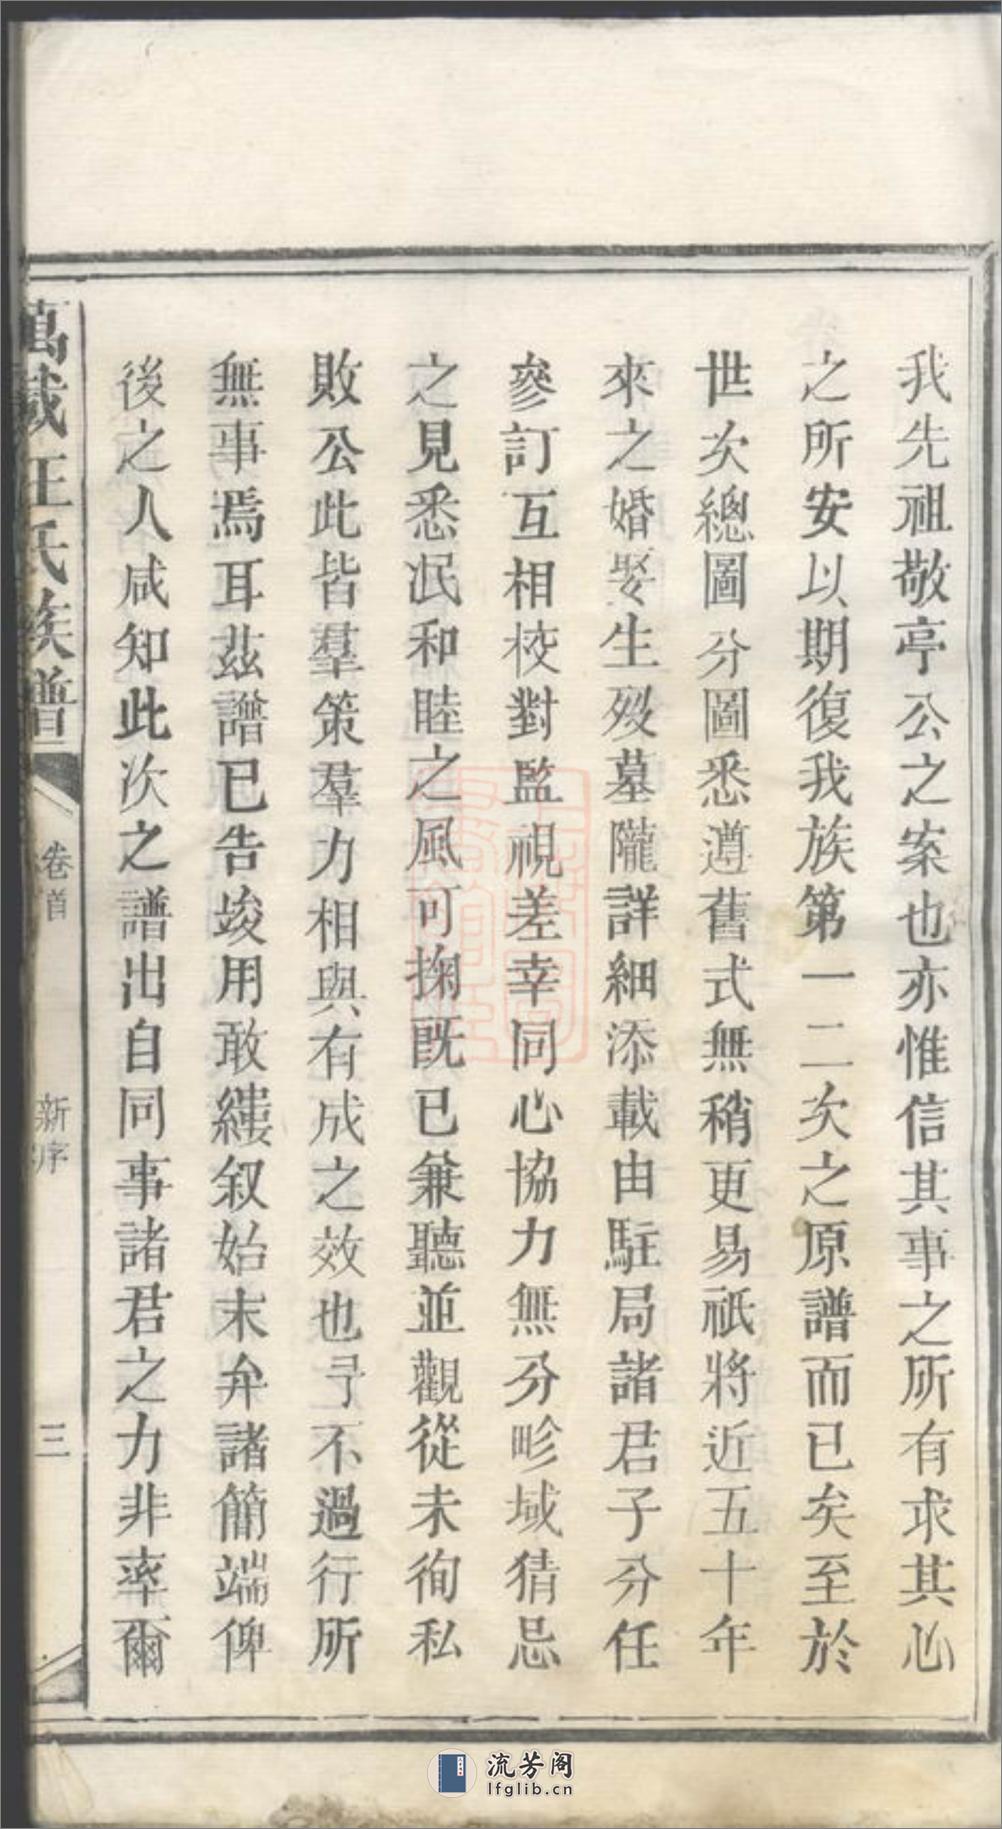 我先祖敬亭公之案也亦惟信其事之所有求其心
之所安以期復我族第一二次之原譜而已矣至於
世次總圖分圖悉遵舊式無稍更易祇將近五十年
來之婚娶生歿墓隴詳細添載由駐局諸君子分任
參訂互相校對監視差幸同心協力無分畛域猜忌
之見悉泯和睦之風可掬既已兼聽並觀從未徇私
敗公此皆羣策羣力相與有成之效也予不過行所
無事焉耳茲譜已告竣用敢縷叙始末弁諸簡端俾
後之人咸知此次之譜出自同事諸君之力非率爾
萬載王氏族譜
卷首
新序
三
流芳阁
lfglib.cn